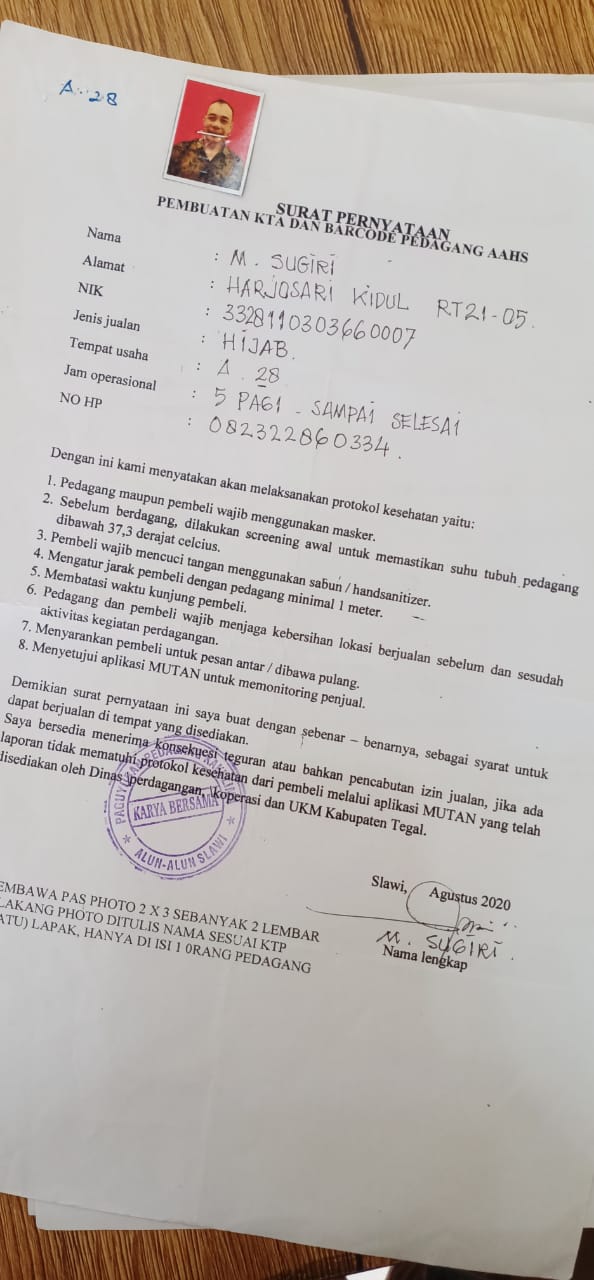 A. 28
SURAT PERNYATAAN
PEMBUATAN KTA DAN BARCODE PEDAGANG AAHS
Nama : M. SUGIRI
Alamat : HARJOSARI KIDUL RT21-05.
NIK : 3328110303660007
Jenis jualan : HIJAB.
Tempat usaha : A. 28
Jam operasional : 5 PAGI - SAMPAI SELESAI
NO HP : 082322860334.
Dengan ini kami menyatakan akan melaksanakan protokol kesehatan yaitu:
1. Pedagang maupun pembeli wajib menggunakan masker.
2. Sebelum berdagang, dilakukan screening awal untuk memastikan suhu tubuh pedagang
dibawah 37,3 derajat celcius.
3. Pembeli wajib mencuci tangan menggunakan sabun / handsanitizer.
4. Mengatur jarak pembeli dengan pedagang minimal 1 meter.
5. Membatasi waktu kunjung pembeli.
6. Pedagang dan pembeli wajib menjaga kebersihan lokasi berjualan sebelum dan sesudah
aktivitas kegiatan perdagangan.
7. Menyarankan pembeli untuk pesan antar / dibawa pulang.
8. Menyetujui aplikasi MUTAN untuk memonitoring penjual.
Demikian surat pernyataan ini saya buat dengan sebenar – benarnya, sebagai syarat untuk
dapat berjualan di tempat yang disediakan.
Saya bersedia menerima konsekuesi teguran atau bahkan pencabutan izin jualan, jika ada
laporan tidak mematuhi protokol kesehatan dari pembeli melalui aplikasi MUTAN yang telah
disediakan oleh Dinas perdagangan, koperasi dan UKM Kabupaten Tegal.
KARYA BERSAMA
ALUN-ALUN SLAWI
Slawi, Agustus 2020
M. SUGIRI.
Nama lengkap
EMBAWA PAS PHOTO 2 X 3 SEBANYAK 2 LEMBAR
LAKANG PHOTO DITULIS NAMA SESUAI KTP
ATU) LAPAK, HANYA DI ISI 1 0RANG PEDAGANG